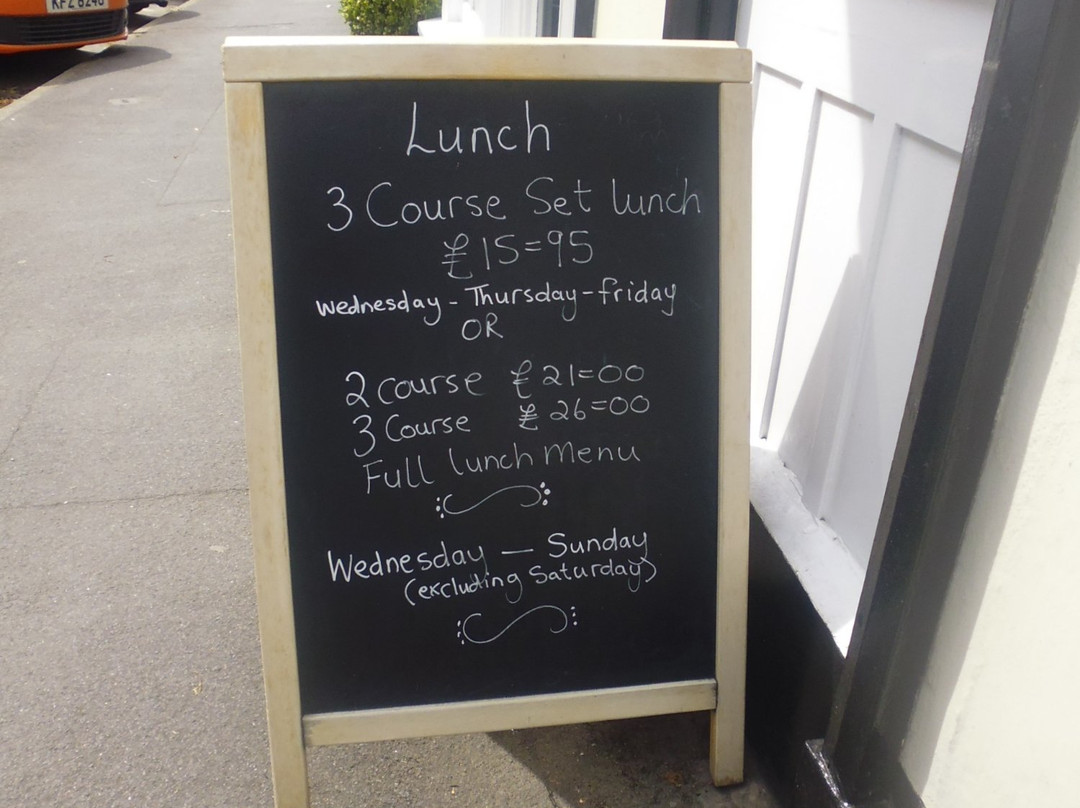 KFZ 8248
Lunch
3 Course Set lunch
£15=95
Wednesday - Thursday - friday
OR
2 course £21=00
3 Course £26=00
Full lunch Menu
Wednesday — Sunday
(excluding Saturday)